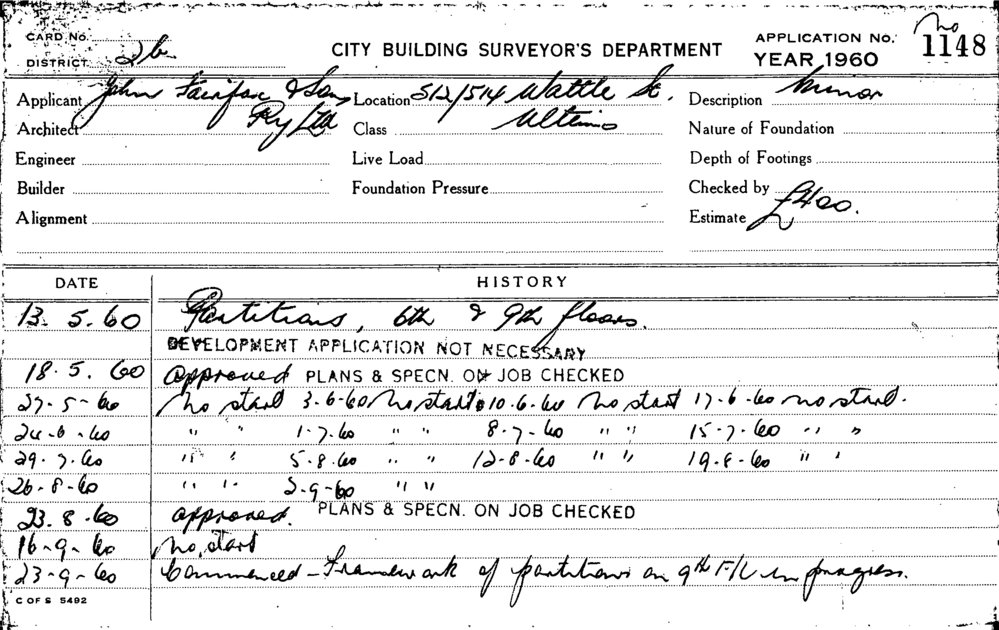 CARD No. CITY BUILDING SURVEYOR'S DEPARTMENT APPLICATION No. No 1148
DISTRICT 2b YEAR 1960
Applicant John Fairfax & Sons Location 512/514 Wattle St. Description Minor
Architect Pty Ltd Class Ultimo Nature of Foundation
Engineer Live Load Depth of Footings
Builder Foundation Pressure Checked by
Alignment Estimate £400.
DATE HISTORY
13. 5. 60 Partitions, 6th & 9th floors.
DEVELOPMENT APPLICATION NOT NECESSARY
18. 5. 60 approved PLANS & SPECN. ON JOB CHECKED
27-5-60 No start 3-6-60 No start 10.6.60 No start 17-6-60 no start.
24-6-60 " " 1-7-60 " " 8-7-60 " " 15-7-60 " "
29-7-60 " " 5-8-60 " " 12-8-60 " " 19-8-60 " "
26-8-60 " " 2-9-60 " "
23.8.60 approved. PLANS & SPECN. ON JOB CHECKED
16-9-60 No start
23-9-60 Commenced - Framework of partitions on 9th F/L in progress.
C OF S 5492